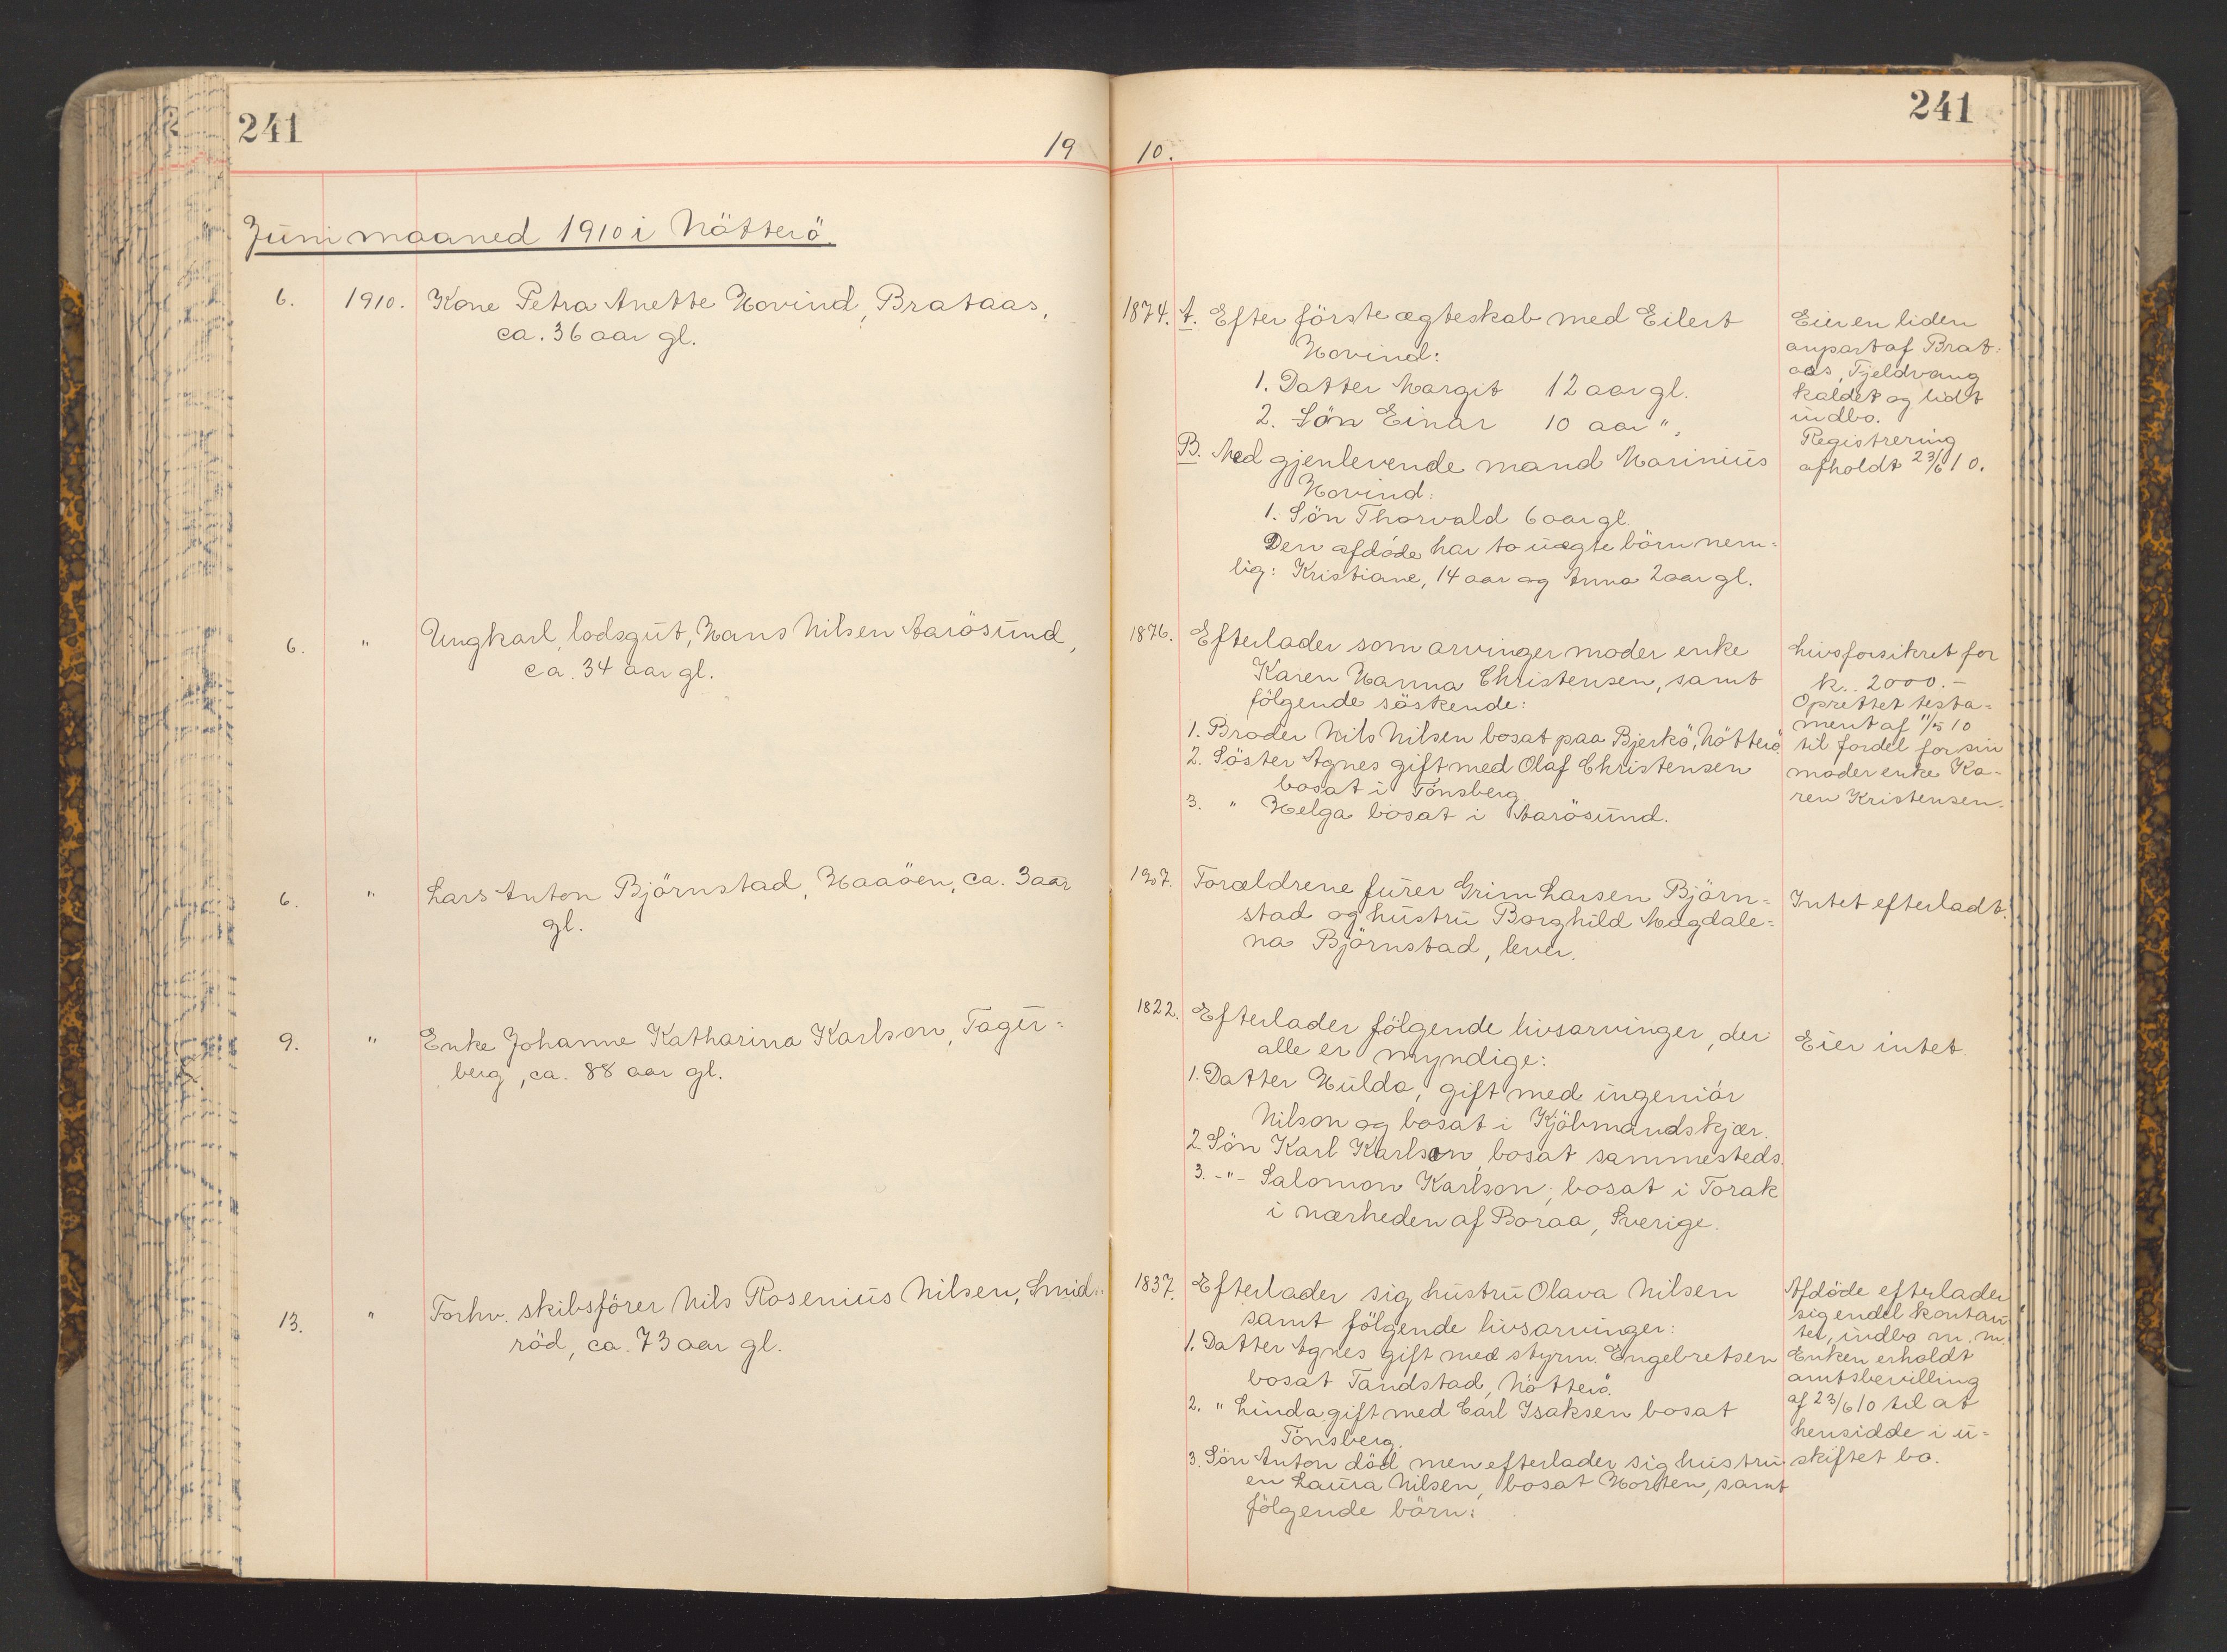 241
241
19 10.
Juni maaned 1910 i Nötterö.
6. 1910. Kone Petra Anette Hovind, Brataas,
ca. 36 aar gl.
1874. A. Efter förste ægteskab med Eilert
Hovind:
1. Datter Margit 12 aar gl.
2. Sön Einar 10 aar ".
B. Med gjenlevende mand Marinius
Hovind:
1. Sön Thorvald 6 aar gl.
Den afdöde har to uægte börn nem=
lig: Kristiane, 14 aar og Anna 2 aar gl.
Eier en liden
anpart af Brat=
aas, Fjeldvang
kaldet og lidt
indbo.
Registrering
afholdt 23/6 10.
6. " Ungkarl, lodsgut, Hans Nilsen Aarösund,
ca. 34 aar gl.
1876. Efterlader som arvinger moder enke
Karen Hanna Christensen, samt
fölgende söskende:
1. Broder Nils Nilsen bosat paa Bjerkö, Nötterö.
2. Söster Agnes gift med Olaf Christensen
bosat i Tönsberg.
3. " Helga bosat i Aarösund.
Livsforsikret for
k. 2000.-
Oprettet testa=
ment af 11/5 10
til fordel for sin
moder enke Ka=
ren Kristensen.
6. " Lars Anton Björnstad, Haaöen, ca. 3 aar
gl.
1907. Forældrene furer Grim Larsen Björn=
stad og hustru Borghild Magdale=
na Björnstad, lever.
Intet efterladt.
9. " Enke Johanne Katharina Karlson, Tager=
berg, ca. 88 aar gl.
1822. Efterlader fölgende livsarvinger, der
alle er myndige:
1. Datter Hulda, gift med ingeniör
Nilson og bosat i Kjöbmandskjær.
2. Sön Karl Karlson, bosat sammesteds.
3. -"- Salomon Karlson, bosat i Torak
i nærheden af Boraa, Sverige.
Eier intet.
13. " Forhv. skibsförer Nils Rosenius Nilsen, Smid=
röd, ca. 73 aar gl.
1837. Efterlader sig hustru Olava Nilsen
samt fölgende livsarvinger:
1. Datter Agnes gift med styrm. Engebretsen
bosat Tandstad, Nötterö.
2. " Linda gift med Carl Isaksen bosat
Tönsberg.
3. Sön Anton död men efterlader sig hustru
en Laura Nilsen, bosat Horten, samt
fölgende börn:
Afdöde efterlader
sig endel kontan=
ter, indbo m. m.
Enken erholdt
amtsbevilling
af 23/6 10 til at
hensidde i u=
skiftet bo.